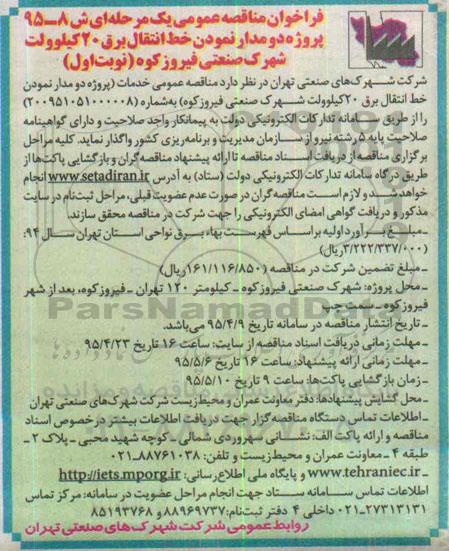 فراخوان مناقصه عمومی یک مرحله‌ای ش ۸-۹۵
پروژه دو مدار نمودن خط انتقال برق ۲۰کیلوولت
شهرک صنعتی فیروزکوه (نوبت اول)
شرکت شهرک‌های صنعتی تهران در نظر دارد مناقصه عمومی خدمات (پروژه دو مدار نمودن
خط انتقال برق ۲۰کیلوولت شهرک صنعتی فیروزکوه) به‌شماره (۲۰۰۹۵۱۰۵۱۰۰۰۰۰۸)
را از طریق سامانه تدارکات الکترونیکی دولت به پیمانکار واجد صلاحیت و دارای گواهینامه
صلاحیت پایه ۵ رشته نیرو از سازمان مدیریت و برنامه‌ریزی کشور واگذار نماید. کلیه مراحل
برگزاری مناقصه از دریافت اسناد مناقصه تا ارائه پیشنهاد مناقصه‌گران و بازگشایی پاکت‌ها از
طریق درگاه سامانه تدارکات الکترونیکی دولت (ستاد) به آدرس www.setadiran.ir انجام
خواهد شد و لازم است مناقصه‌گران در صورت عدم عضویت قبلی، مراحل ثبت‌نام در سایت
مذکور و دریافت گواهی امضای الکترونیکی را جهت شرکت در مناقصه محقق سازند.
-مبلغ برآورد اولیه براساس فهرست بهاء برق نواحی استان تهران سال ۹۴:
(۳/۲۲۲/۳۳۷/۰۰۰ریال)
-مبلغ تضمین شرکت در مناقصه (۱۶۱/۱۱۶/۸۵۰ریال)
-محل پروژه: شهرک صنعتی فیروزکوه - کیلومتر ۱۲۰ تهران - فیروزکوه، بعد از شهر
فیروزکوه - سمت چپ
- تاریخ انتشار مناقصه در سامانه تاریخ ۹۵/۴/۹ می‌باشد.
-مهلت زمانی دریافت اسناد مناقصه از سایت: ساعت ۱۶ تاریخ ۹۵/۴/۲۳
-مهلت زمانی ارائه پیشنهاد: ساعت ۱۶ تاریخ ۹۵/۵/۶
-زمان بازگشایی پاکت‌ها: ساعت ۹ تاریخ ۹۵/۵/۱۰
-محل گشایش پیشنهادها: دفتر معاونت عمران و محیط زیست شرکت شهرک‌های صنعتی تهران
-اطلاعات تماس دستگاه مناقصه گزار جهت دریافت اطلاعات بیشتر درخصوص اسناد
مناقصه و ارائه پاکت الف: نشانی سهروردی شمالی - کوچه شهید محبی - پلاک ۲ -
طبقه ۴ - معاونت عمران و محیط زیست و تلفن: ۸۸۷۶۱۰۳۸-۰۲۱
-www.tehraniec.ir و پایگاه ملی اطلاع‌رسانی: http://iets.mporg.ir
اطلاعات تماس سامانه ستاد جهت انجام مراحل عضویت در سامانه: مرکز تماس
۲۷۳۱۳۱۳۱-۰۲۱ داخلی ۴ دفتر ثبت‌نام: ۸۸۹۶۹۷۳۷ و ۸۵۱۹۳۷۶۸
روابط عمومی شرکت شهرک‌های صنعتی تهران
ParsNamadData